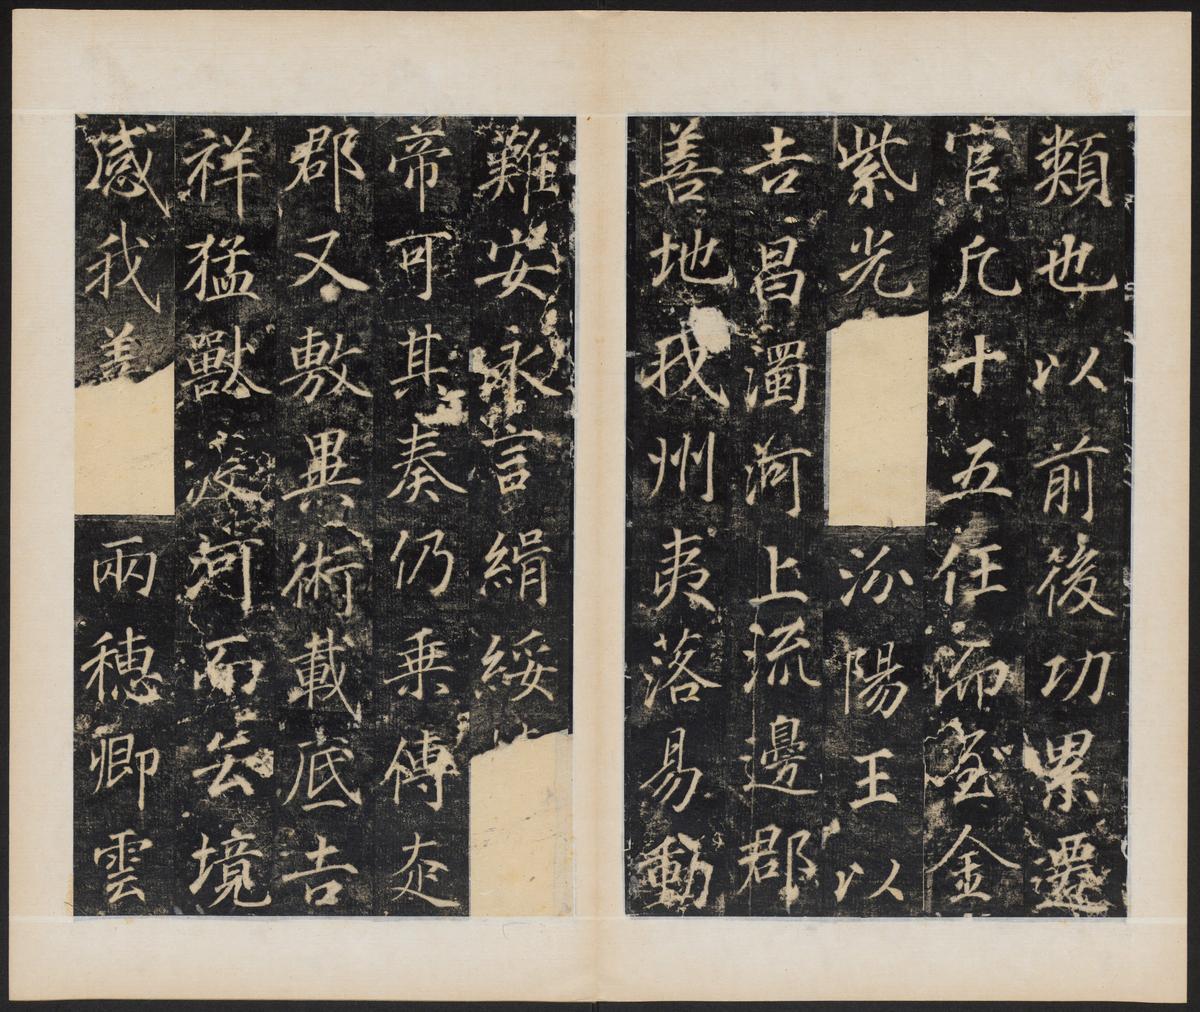 類也以前後功累遷
官凡十五任而登金
紫光汾陽王以
吉昌濁河上流邊郡
善地我州夷落易動
難安永言緝綏
帝可其奏仍乗傳赴
郡又敷異術載底吉
祥猛獸渡河而去境
感我兩穗卿雲